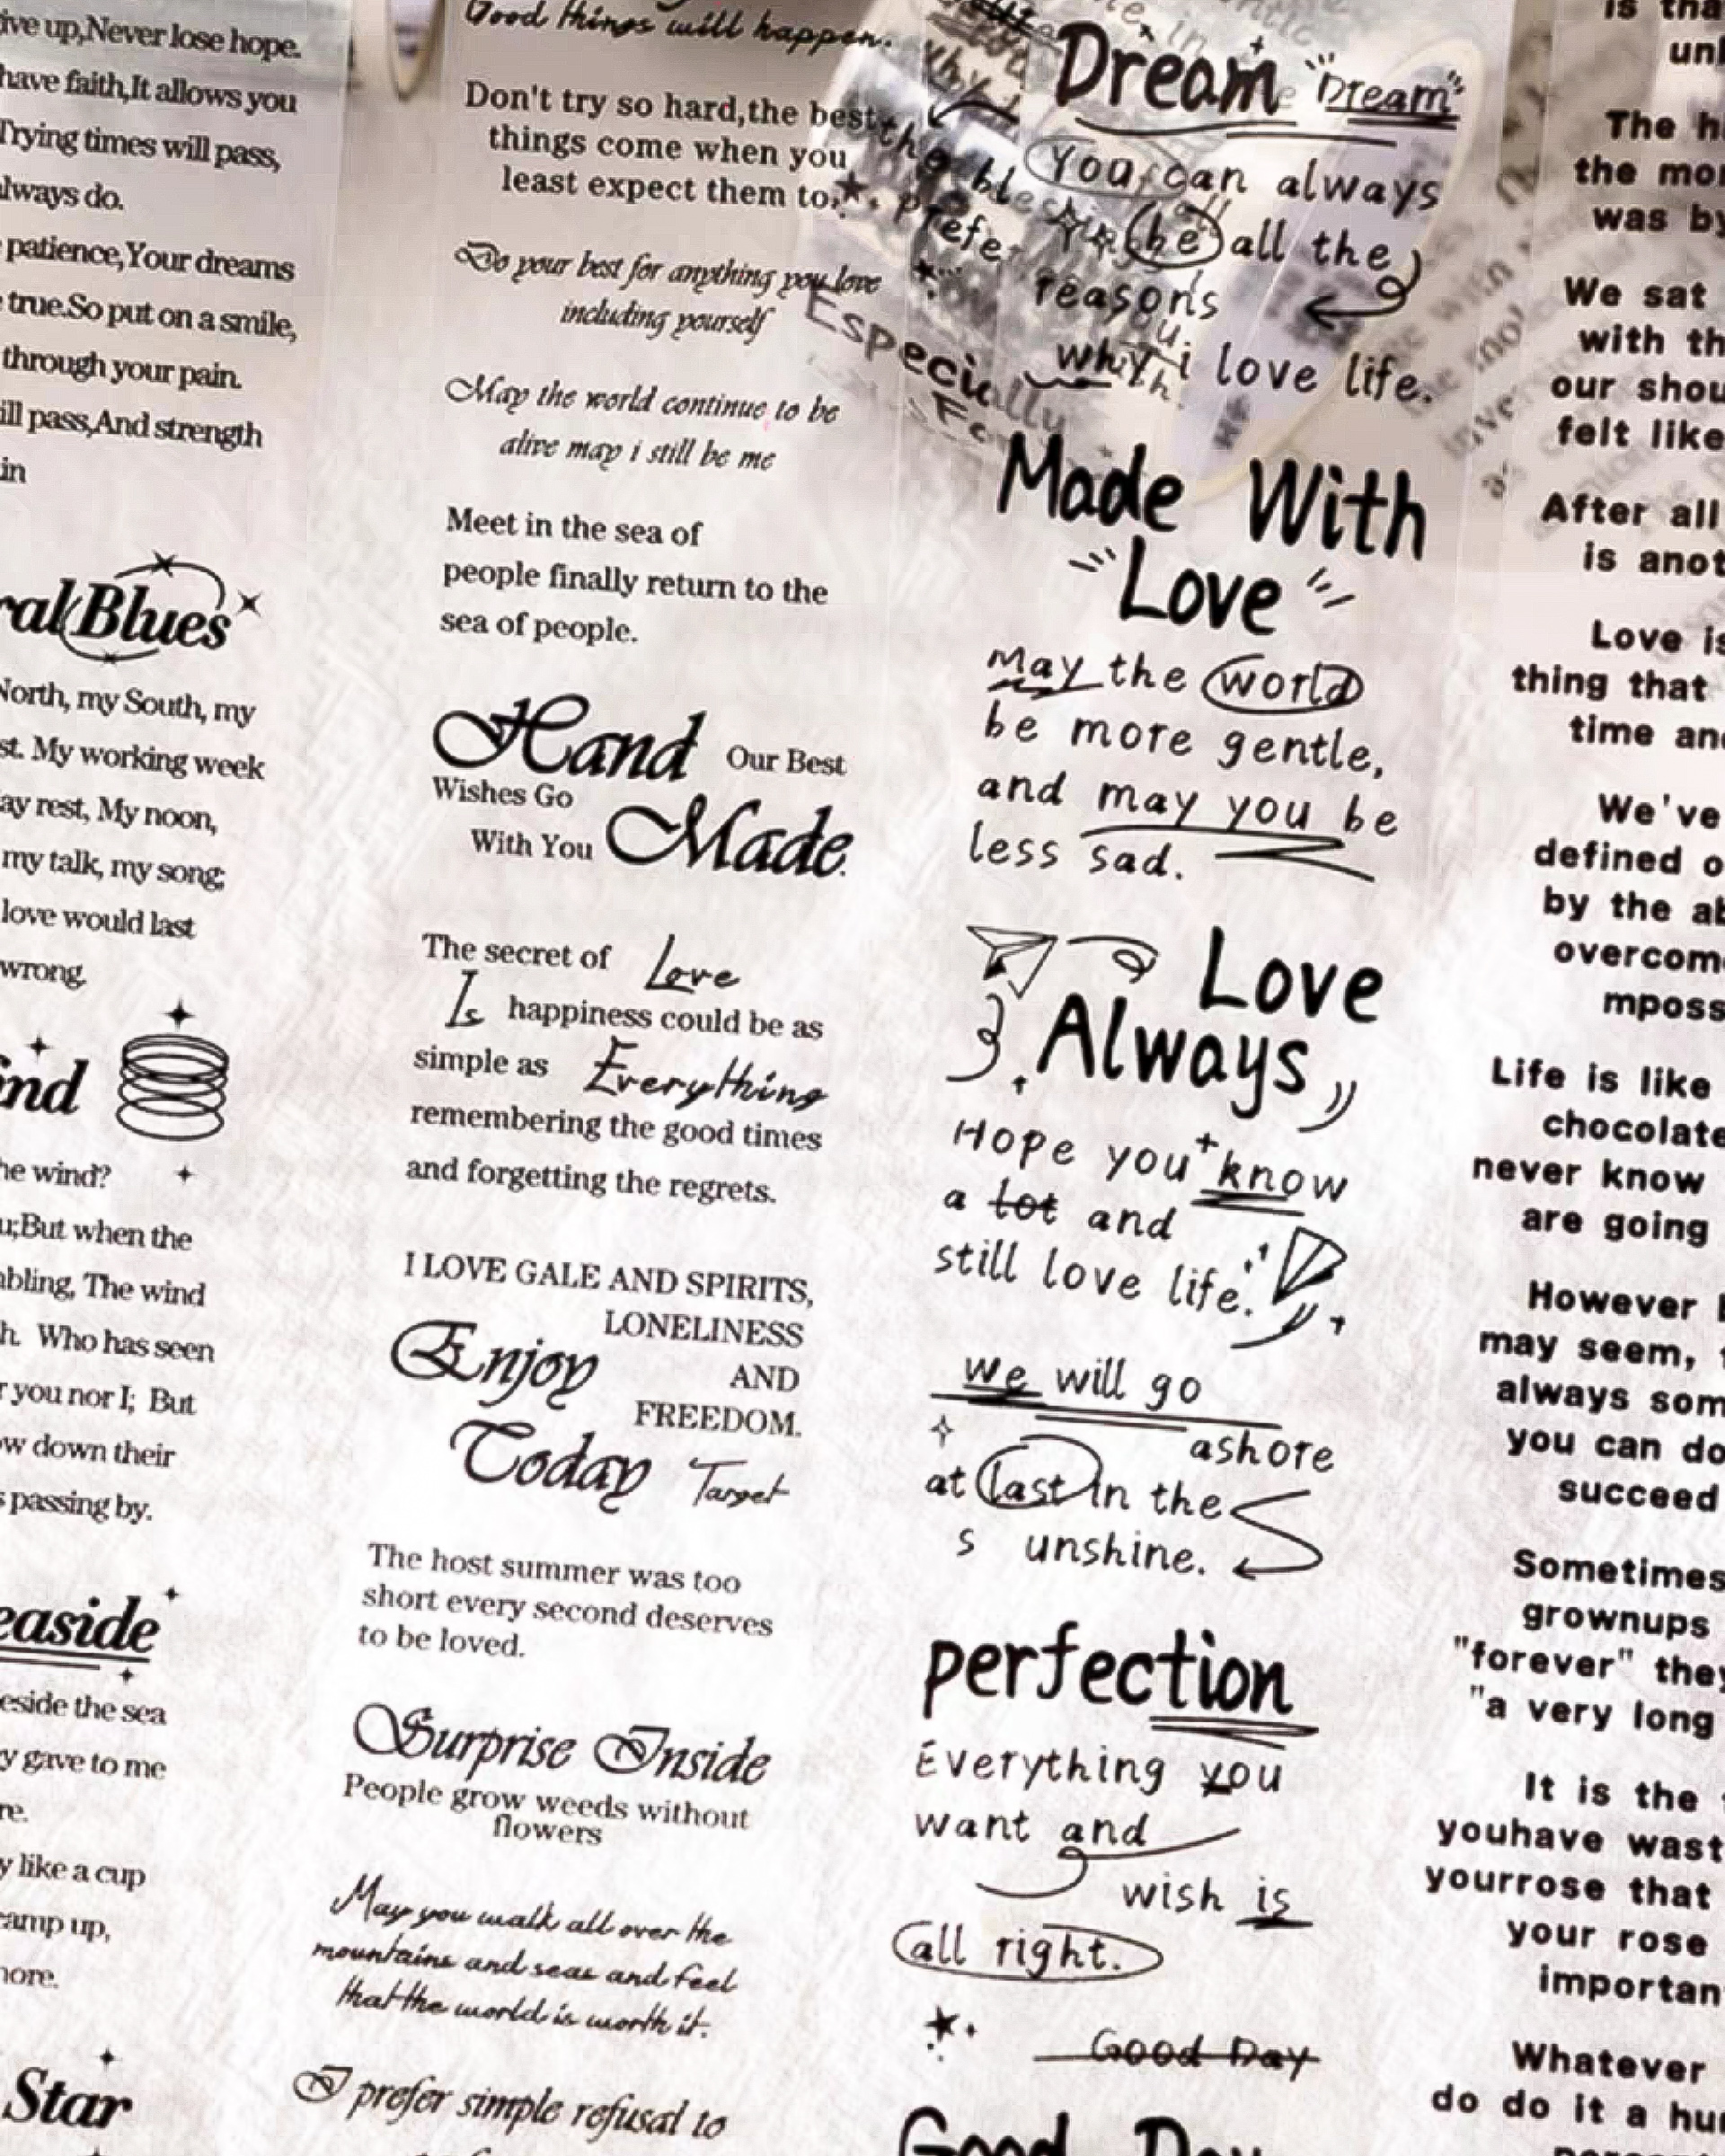 ive up,Never lose hope.
have faith,It allows you
Trying times will pass,
always do.
patience,Your dreams
true.So put on a smile,
through your pain.
ill pass,And strength
in
ral Blues
North, my South, my
st. My working week
ay rest, My noon,
my talk, my song;
love would last
wrong.
ind
he wind?
u;But when the
mbling, The wind
h. Who has seen
r you nor I; But
ow down their
s passing by.
easide
eside the sea
y gave to me
re.
y like a cup
camp up,
more.
Star
Good things will happen.
Don't try so hard,the best
things come when you
least expect them to.
Do your best for anything you love
including yourself
May the world continue to be
alive may i still be me
Meet in the sea of
people finally return to the
sea of people.
Hand Our Best
Wishes Go
With You Made.
The secret of Love
Is happiness could be as
simple as Everything
remembering the good times
and forgetting the regrets.
I LOVE GALE AND SPIRITS,
LONELINESS
Enjoy AND
FREEDOM.
Today Target
The host summer was too
short every second deserves
to be loved.
Surprise Inside
People grow weeds without
flowers
May you walk all over the
mountains and seas and feel
that the world is worth it.
I prefer simple refusal to
Dream "Dream"
You can always
be all the
reasons
why i love life.
Especially
For
Made With
Love
May the world
be more gentle,
and may you be
less sad.
Love
Always
Hope you know
a lot and
still love life.
we will go
ashore
at last in the
s unshine.
perfection
Everything you
want and
wish is
all right.
Good Day
Good Day
is tha
unl
The h
the mor
was by
We sat
with th
our shou
felt like
After all
is anot
Love is
thing that
time and
We've
defined o
by the ab
overcome
mposs
Life is like
chocolate
never know
are going
However
may seem,
always som
you can do
succeed
Sometimes
grownups
"forever" they
"a very long
It is the
youhave wast
yourrose that
your rose
importan
Whatever
do do it a hun